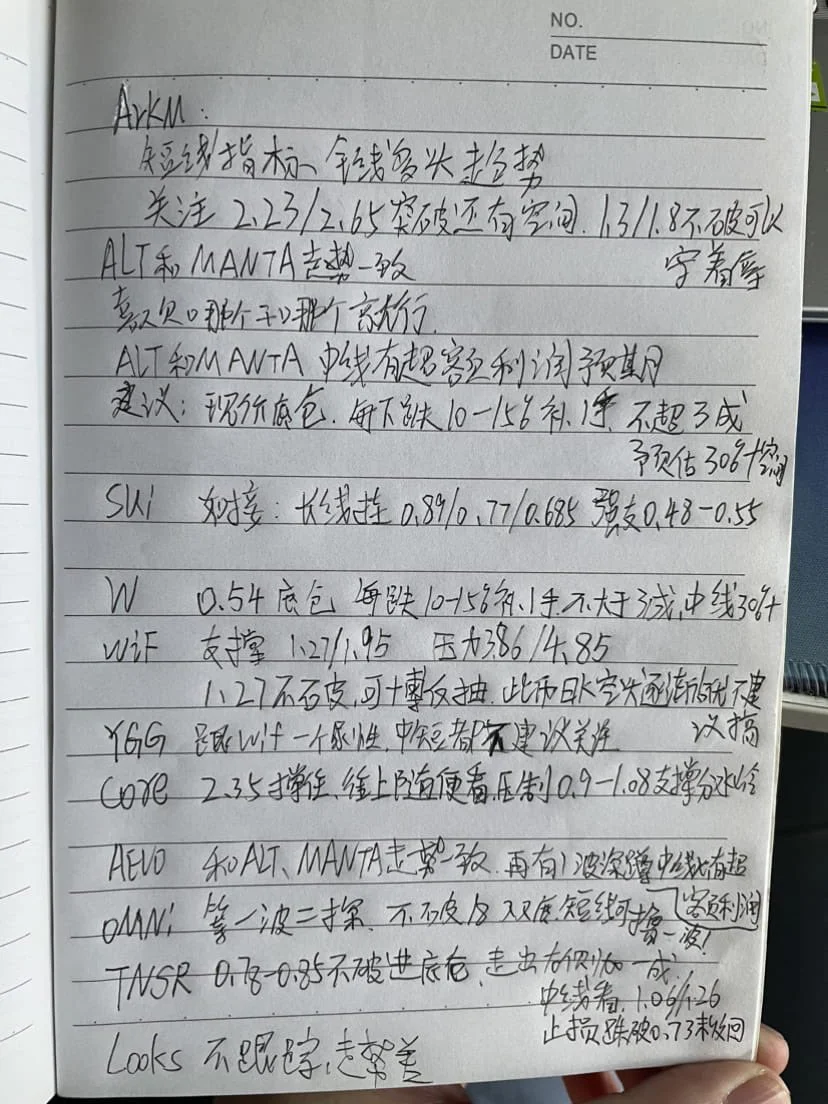 NO.
DATE
ArKM:
短线指标、中线多头走趋势
关注 2.23/2.65突破还有空间. 1.3/1.8不破可以
守着等
ALT和MANTA走势一致
喜欢哪个和哪个就行.
ALT和MANTA 中线有超额利润预期
建议: 现价底仓. 每下跌10-15%补.1手 不超3成
预估30%+空间
SUi 如接: 长线挂 0.89/0.77/0.685 强支0.48-0.55
W 0.54底仓 每跌10-15%补.1手.不大于3成,中线30%+
WiF 支撑 1.27/1.95 压力3.86/4.85
1.27不破,可博反抽. 此币日K空头逐渐 不建
议搞
YGG 跟Wif一个尿性,中短都不建议关注
Core 2.35撑住,往上随便看,压制 0.9-1.08支撑分水岭
AEVO 和ALT、MANTA走势一致. 再有1波深蹲中线有超
额利润
OMNi 等一波二探. 不破18双底.短线可搞一波!
TNSR 0.78-0.85不破进底仓,走出右侧加一成,
中线看. 1.06/1.26
止损跌破0.73未收回
Looks 不跟踪,走势差